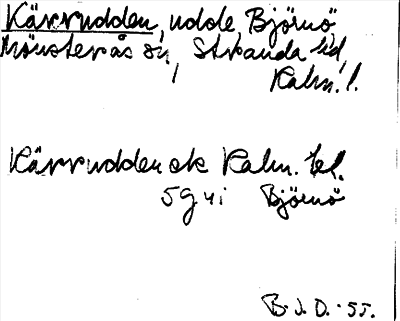 Kärrudden, udde, Björnö
Mönsterås sn, Stranda hd,
Kalm. l.
Kärrudden ek Kalm. bl.
5g4i Björnö
B.J.D. -55.